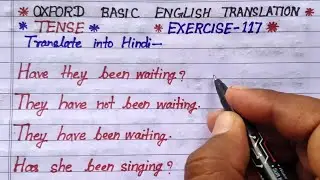 * OXFORD BASIC ENGLISH TRANSLATION *
* TENSE * EXERCISE-117
Translate into Hindi—
Have they been waiting?
They have not been waiting.
They have been waiting.
Has she been singing?